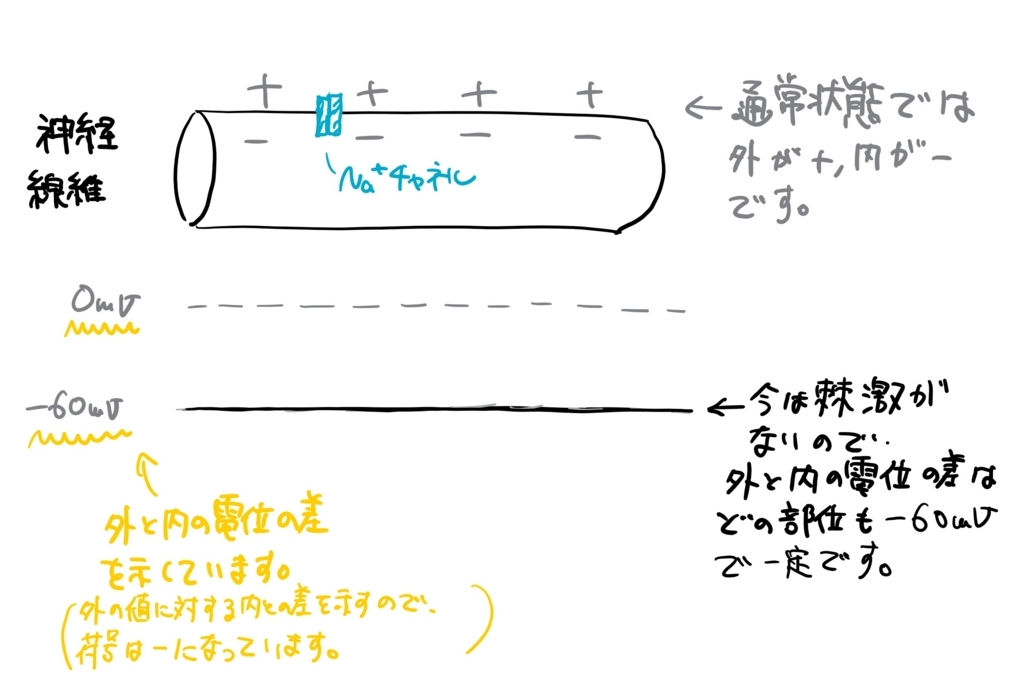 神経
線維
+ + + +
- - - -
Na+チャネル
← 通常状態では
外が+,内が-
です。
0mV
-60mV
← 今は棘激が
ないので..
外と内の電位の差は
どの部位も-60mV
で一定です。
外と内の電位の差
を示しています。
(外の値に対する内との差を示すので、
符号は-になっています。)